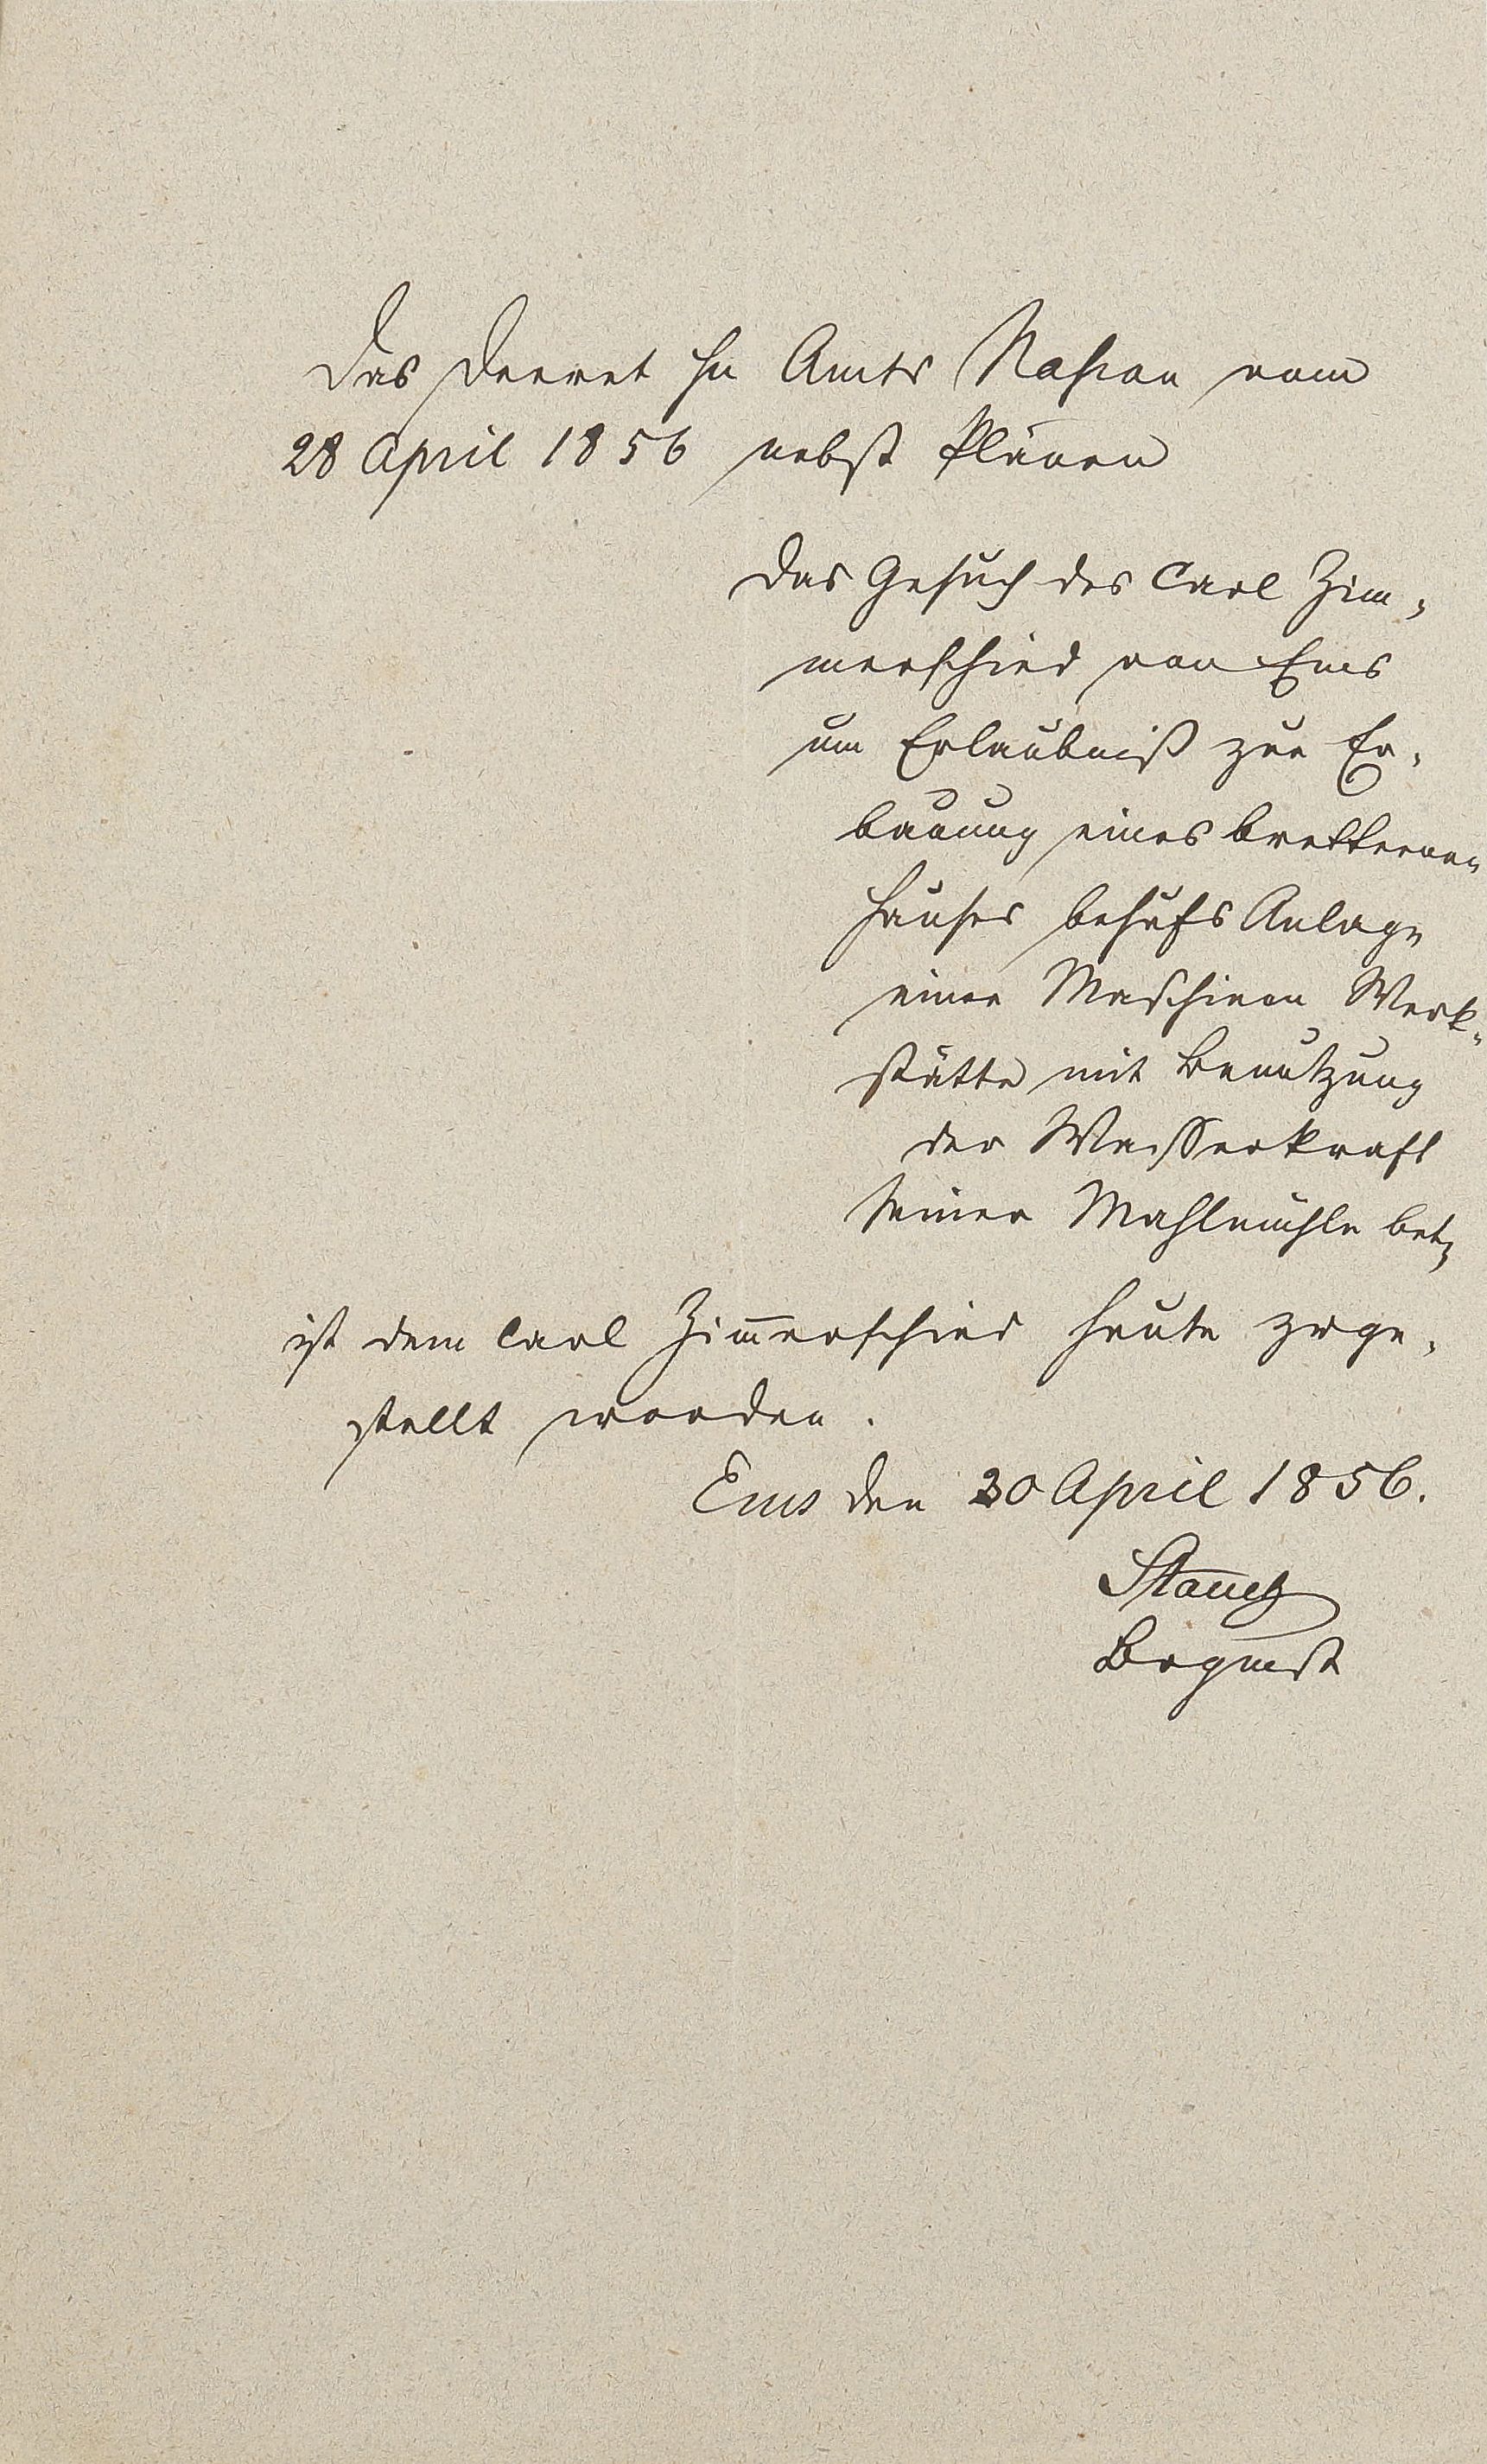 Das Decret Hz Amts Nassau vom
28 April 1856 nebst Plänen
das Gesuch des Carl Zim-
merschied von Ems
um Erlaubniß zur Er-
bauung eines bretternen
Hauses behufs Anlage
einer Maschinen Werk-
stätte mit Benutzung
der Wasserkraft
seiner Mahlmühle betr
ist dem Carl Zimerschied heute zuge-
stellt worden.
Ems den 30 April 1856.
Brgmst